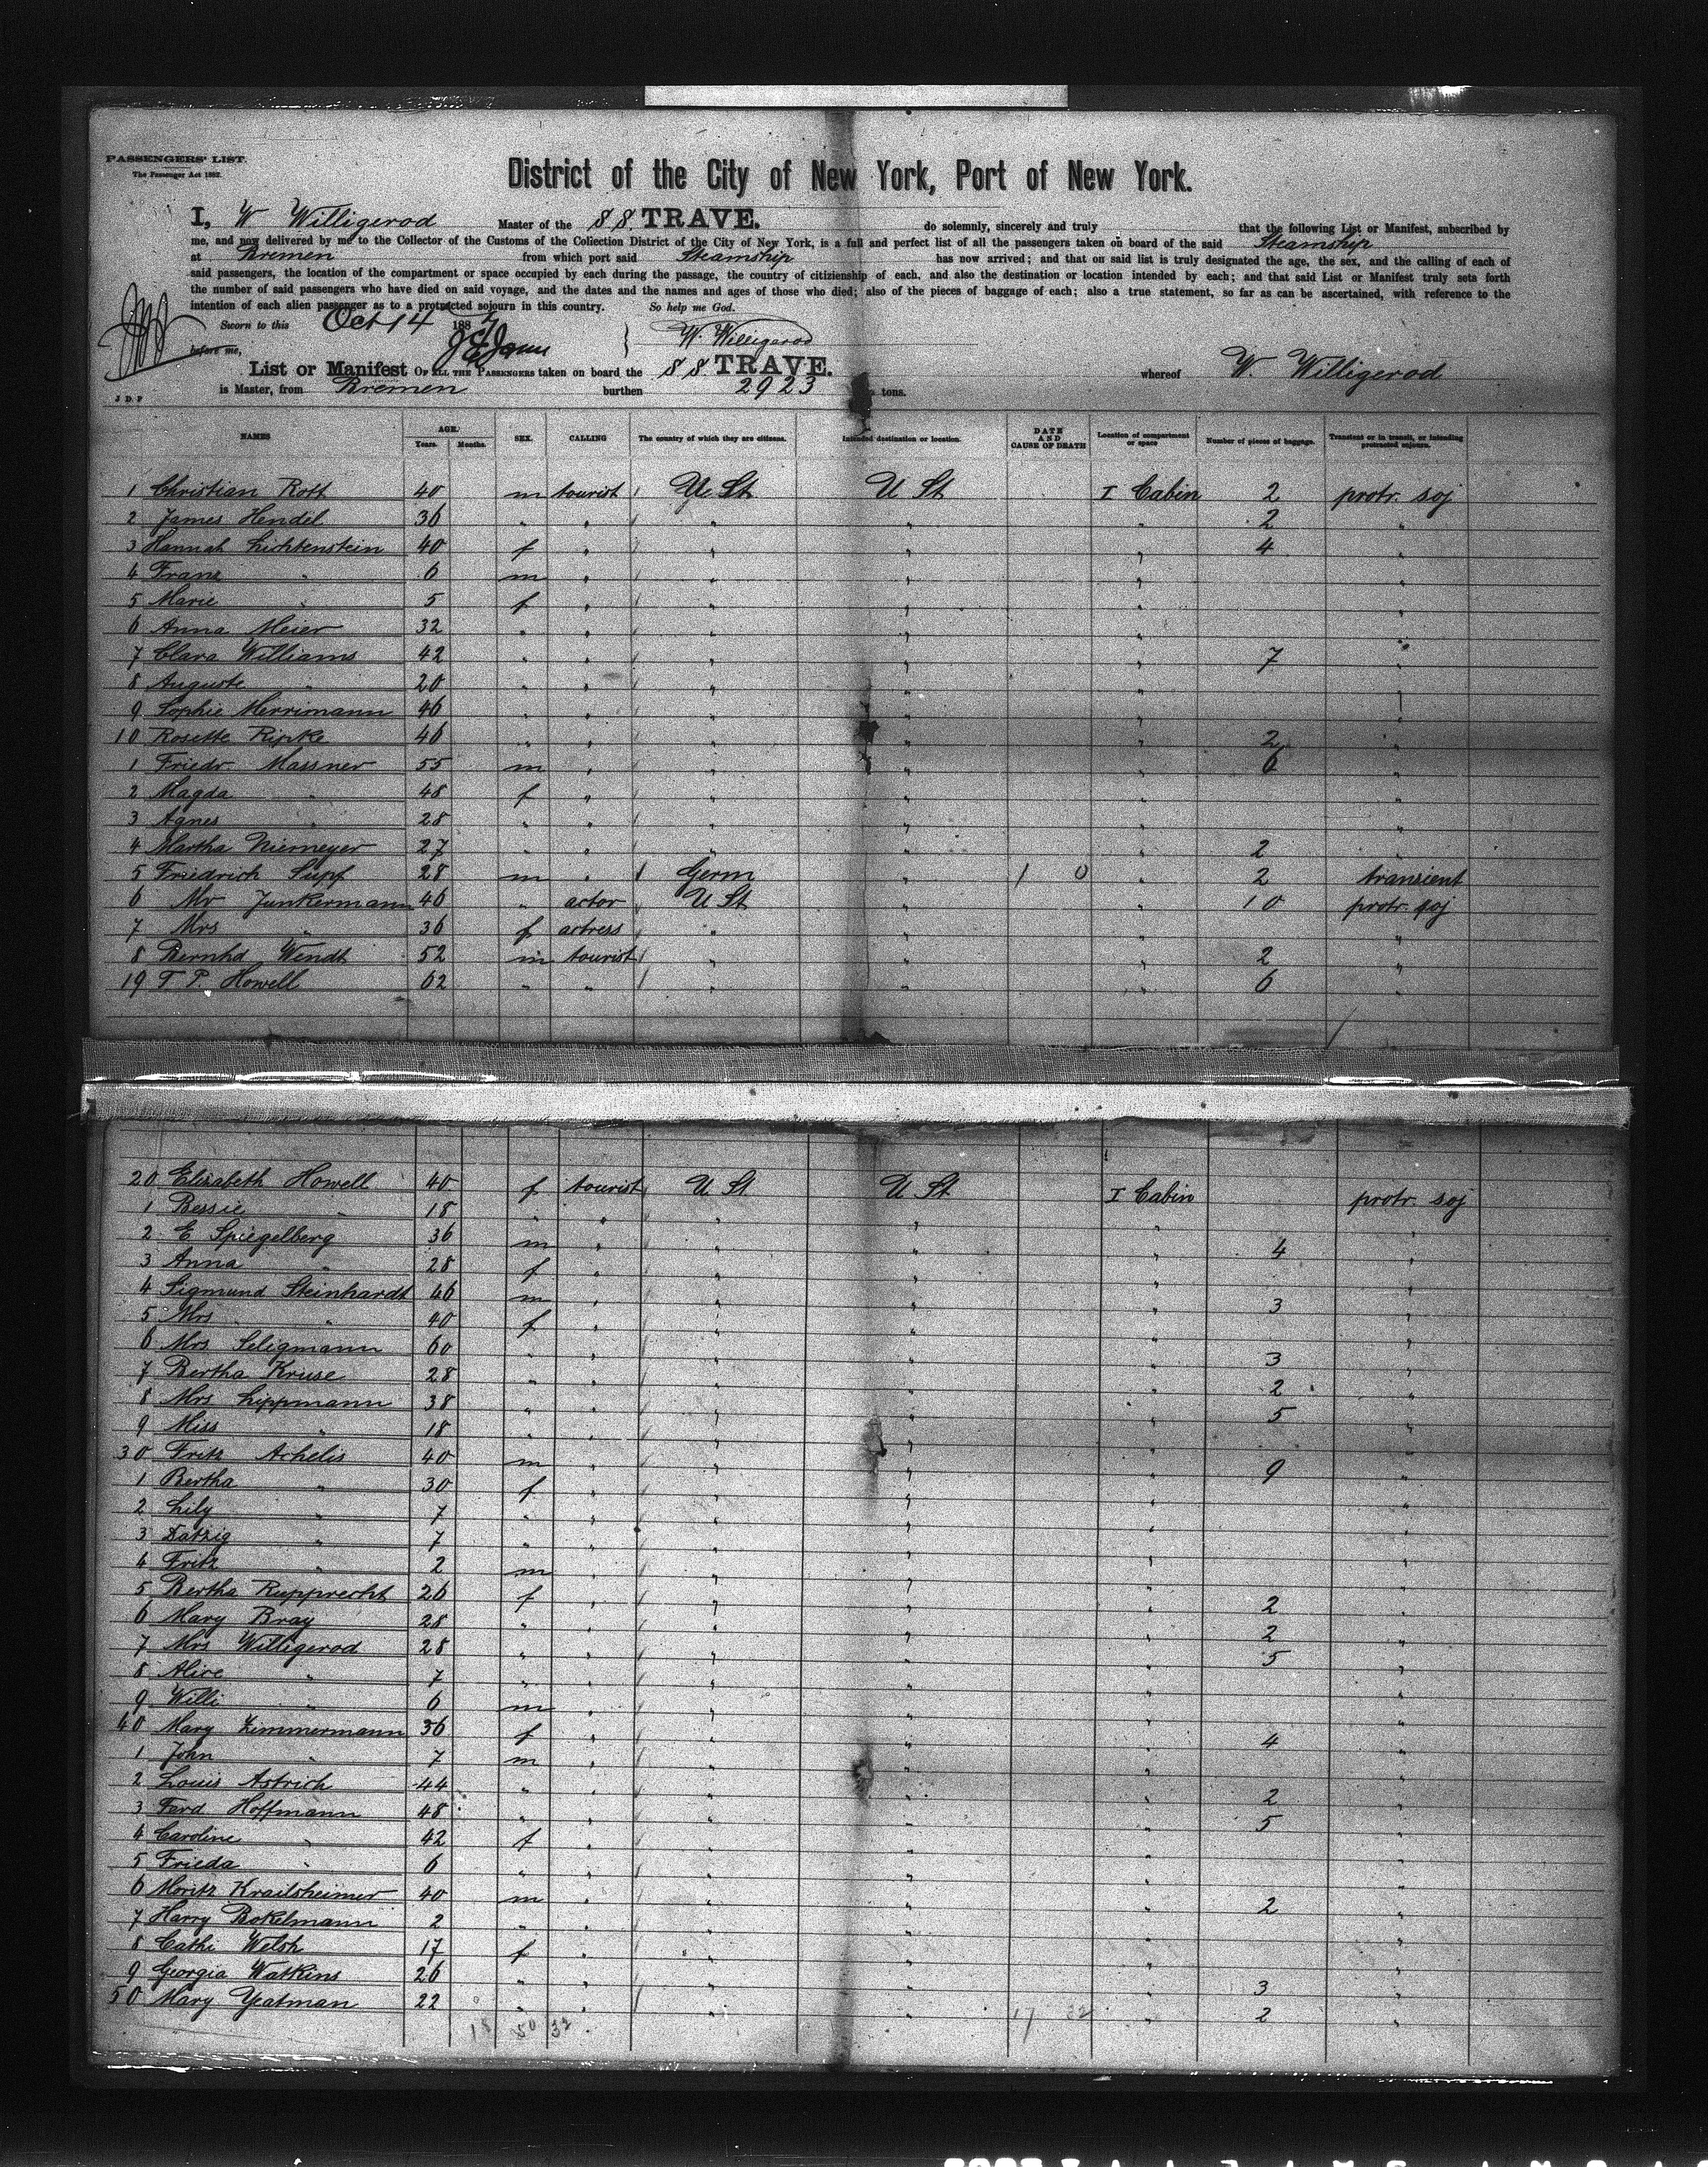 PASSENGERS' LIST.
The Passenger Act 1882.
District of the City of New York, Port of New York.
I, W Willigerod Master of the SS. TRAVE. do solemnly, sincerely and truly that the following List or Manifest, subscribed by
me, and now delivered by me to the Collector of the Customs of the Collection District of the City of New York, is a full and perfect list of all the passengers taken on board of the said Steamship
at Bremen from which port said Steamship has now arrived; and that on said list is truly designated the age, the sex, and the calling of each of
said passengers, the location of the compartment or space occupied by each during the passage, the country of citizienship of each, and also the destination or location intended by each; and that said List or Manifest truly sets forth
the number of said passengers who have died on said voyage, and the dates and the names and ages of those who died; also of the pieces of baggage of each; also a true statement, so far as can be ascertained, with reference to the
intention of each alien passenger as to a protracted sojourn in this country. So help me God.
Sworn to this Oct 14 188
before me, W. Willigerod
List or Manifest OF ALL THE PASSENGERS taken on board the SS. TRAVE. whereof W. Willigerod
is Master, from Bremen burthen 2923 tons.
J D P
NAMES AGE. Years. Months. SEX. CALLING The country of which they are citizens. Intended destination or location. DATE AND CAUSE OF DEATH Location of compartment or space Number of pieces of baggage. Transient or in transit, or intending protracted sojourn.
1 Christian Rott 40 m tourist U St U St I Cabin 2 protr. soj
2 James Hendel 36 " " " " " 2 "
3 Hannah Lichtenstein 40 f " " " " 4 "
4 Franz " 6 m " " " "
5 Marie " 5 f " " " " "
6 Anna Meier 32 " " " " " "
7 Clara Williams 42 " " " " " 7 "
8 Auguste " 20 " " " " "
9 Sophie Merrimann 46 " " " " "
10 Rosette Ripke 46 " " " " " 2 "
1 Friedr Massner 55 m " " " " 6 "
2 Magda " 48 f " " " " "
3 Agnes " 28 " " " " " "
4 Martha Niemeyer 27 " " " " " 2 "
5 Friedrich Supf 28 m " Germ " 1 0 " 2 transient
6 Mr Junkermann 46 " actor U St " " 10 protr. soj
7 Mrs " 36 f actress " " " "
8 Bernhd Wendt 52 m tourist " " " 2 "
19 T P. Howell 62 " " " " " 6 "
20 Elisabeth Howell 40 f tourist U St U St I Cabin protr. soj
1 Bessie " 18 " " " " " "
2 E Spiegelberg 36 m " " " " 4 "
3 Anna " 28 f " " " " "
4 Sigmund Steinhardt 46 m " " " " 3 "
5 Mrs " 40 f " " " " "
6 Mrs Seligmann 60 " " " " " 3 "
7 Bertha Kruse 28 " " " " " 2 "
8 Mrs Lippmann 38 " " " " " 5 "
9 Miss " 18 " " " " " "
30 Fritz Achelis 40 m " " " " 9 "
1 Bertha " 30 f " " " " "
2 Lily " 7 " " " " " "
3 " 7 " " " " " "
4 Fritz " 2 m " " " " "
5 Bertha Rupprecht 26 f " " " " 2 "
6 Mary Bray 28 " " " " " 2 "
7 Mrs Willigerod 28 " " " " " 5 "
8 Alice " 7 " " " " " "
9 Willi " 6 m " " " " "
40 Mary Zimmermann 36 f " " " " 4 "
1 John " 7 m " " " " "
2 Louis Astrich 44 " " " " " 2 "
3 Ferd Hoffmann 48 " " " " " 5 "
4 Caroline " 42 f " " " " "
5 Frieda " 6 " " " " " "
6 Moritz Krailsheimer 40 m " " " " 2 "
7 Harry Bokelmann 2 " " " " " "
8 Cathi Welsh 17 f " " " " "
9 Georgia Watkins 26 " " " " " 3 "
50 Mary Yeatman 22 " " " " " 2 "
18 50 32 17 32